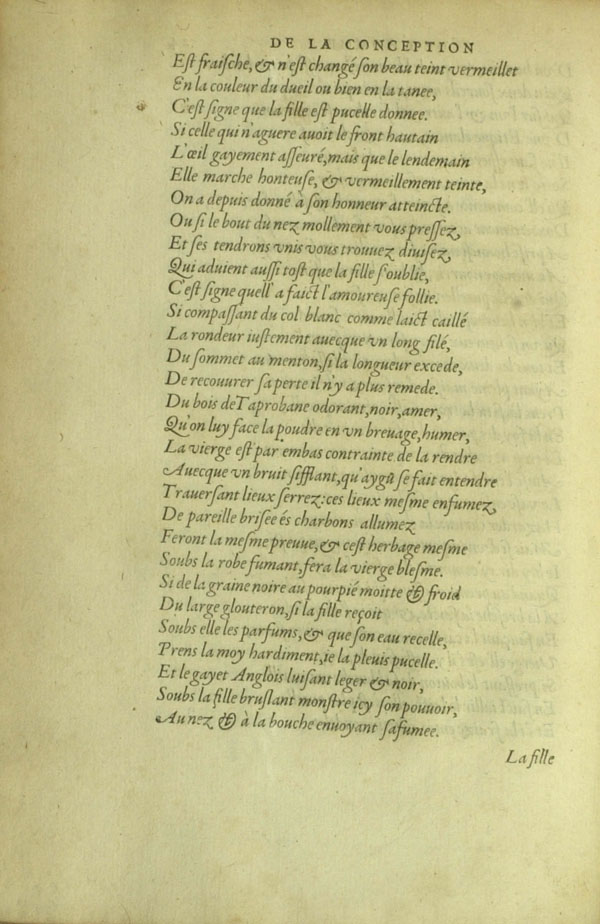 DE LA CONCEPTION
Est fraische, & n'est changé son beau teint vermeillet
En la couleur du dueil ou bien en la tanee,
C'est signe que la fille est pucelle donnee.
Si celle qui n'aguere auoit le front hautain
L'œil gayement asseuré, mais que le lendemain
Elle marche honteuse, & vermeillement teinte,
On a depuis donné à son honneur atteincte.
Ou si le bout du nez mollement vous pressez,
Et ses tendrons vnis vous trouuez diuisez,
Qui aduient aussi tost que la fille s'oublie,
C'est signe quell' a faict l'amoureuse follie.
Si compassant du col blanc comme laict caillé
La rondeur iustement auecque vn long filé,
Du sommet au menton, si la longueur excede,
De recouurer sa perte il n'y a plus remede.
Du bois de Taprobane odorant, noir, amer,
Qu'on luy face la poudre en vn breuage, humer,
La vierge est par embas contrainte de la rendre
Auecque vn bruit sifflant, qu'aygû se fait entendre
Trauersant lieux serrez: ces lieux mesme enfumez,
De pareille brisee és charbons allumez
Feront la mesme preuue, & cest herbage mesme
Soubs la robe fumant, fera la vierge blesme.
Si de la graine noire au pourpié moitte & froid
Du large glouteron, si la fille reçoit
Soubs elle les parfums, & que son eau recelle,
Prens la moy hardiment, ie la pleuis pucelle.
Et le gayet Anglois luisant leger & noir,
Soubs la fille bruslant monstre icy son pouuoir,
Au nez & à la bouche enuoyant sa fumee.
La fille